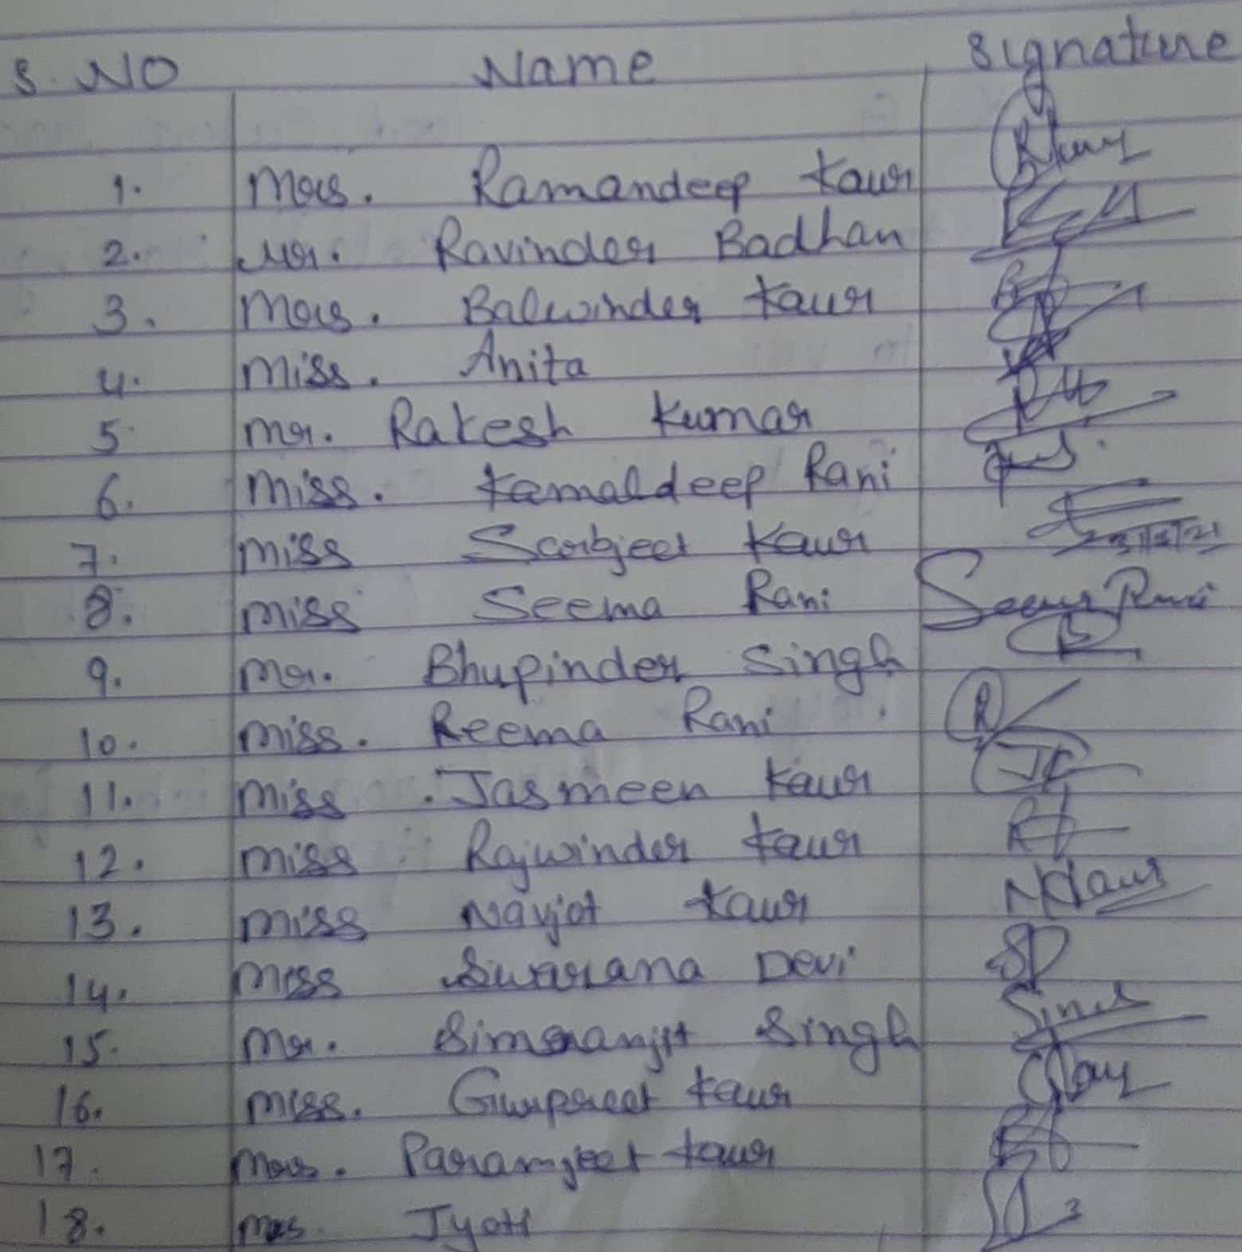 S. NO Name Signature
1. Mrs. Ramandeep Kaur
2. Mr. Ravinder Badhan
3. Mrs. Balwinder Kaur
4. Miss. Anita
5. Mr. Rakesh Kumar
6. Miss. Kamaldeep Rani
7. Miss Sarbjeet Kaur
8. Miss Seema Rani Seema Rani
9. Mr. Bhupinder Singh
10. Miss. Reema Rani
11. Miss Jasmeen Kaur
12. Miss Rajwinder Kaur
13. Miss Navjot Kaur NKaur
14. Miss Swarana Devi SD
15. Mr. Simranjit Singh
16. Miss. Gurpreet Kaur
17. Mrs. Paramjeet Kaur
18. Mrs. Jyoti